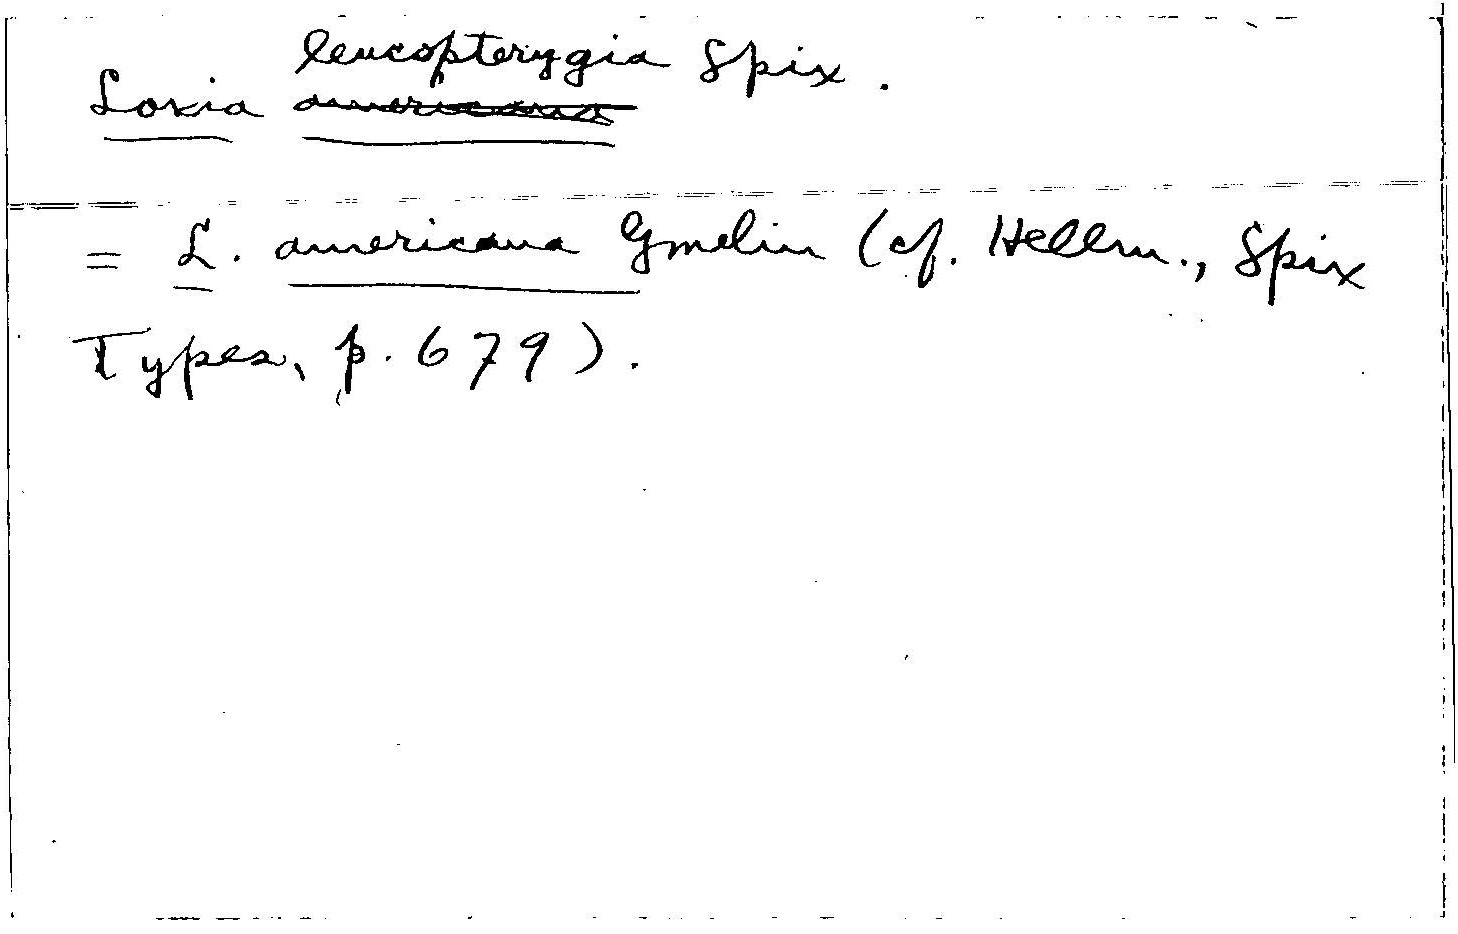 Loxia leucopterygia Spix.
= L. americana Gmelin (cf. Hellm., Spix
Types, p. 679).